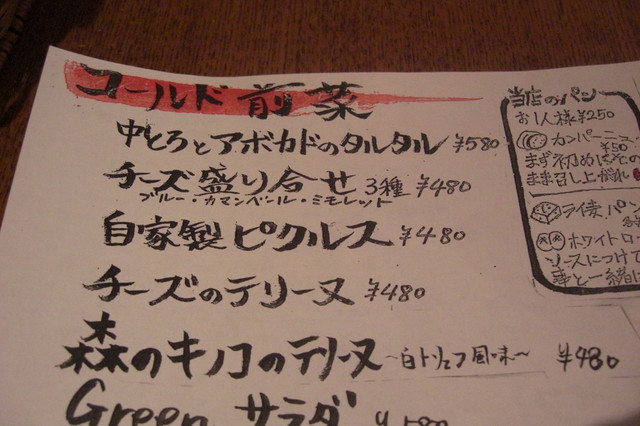 コールド前菜
中とろとアボカドのタルタル ¥580
チーズ盛り合せ 3種 ¥480
ブルー・カマンベール・ミモレット
自家製ピクルス ¥480
チーズのテリーヌ ¥480
森のキノコのテリーヌ ~白トリュフ風味~ ¥480
Green サラダ
当店のパン
お1人様¥250
カンパーニュ
¥50
まず初めに
まま召し上がれ
ライ麦パン
ホワイトロ
ソースにつけて
菜と一緒に